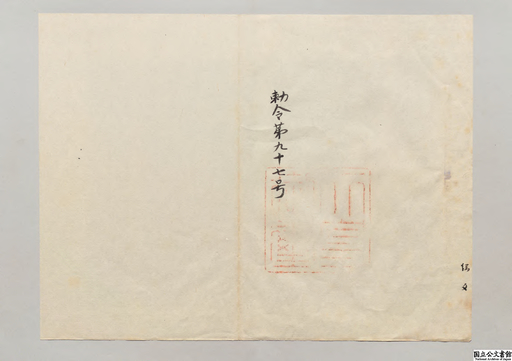 勅令第九十七号
国立公文書館
National Archives of Japan